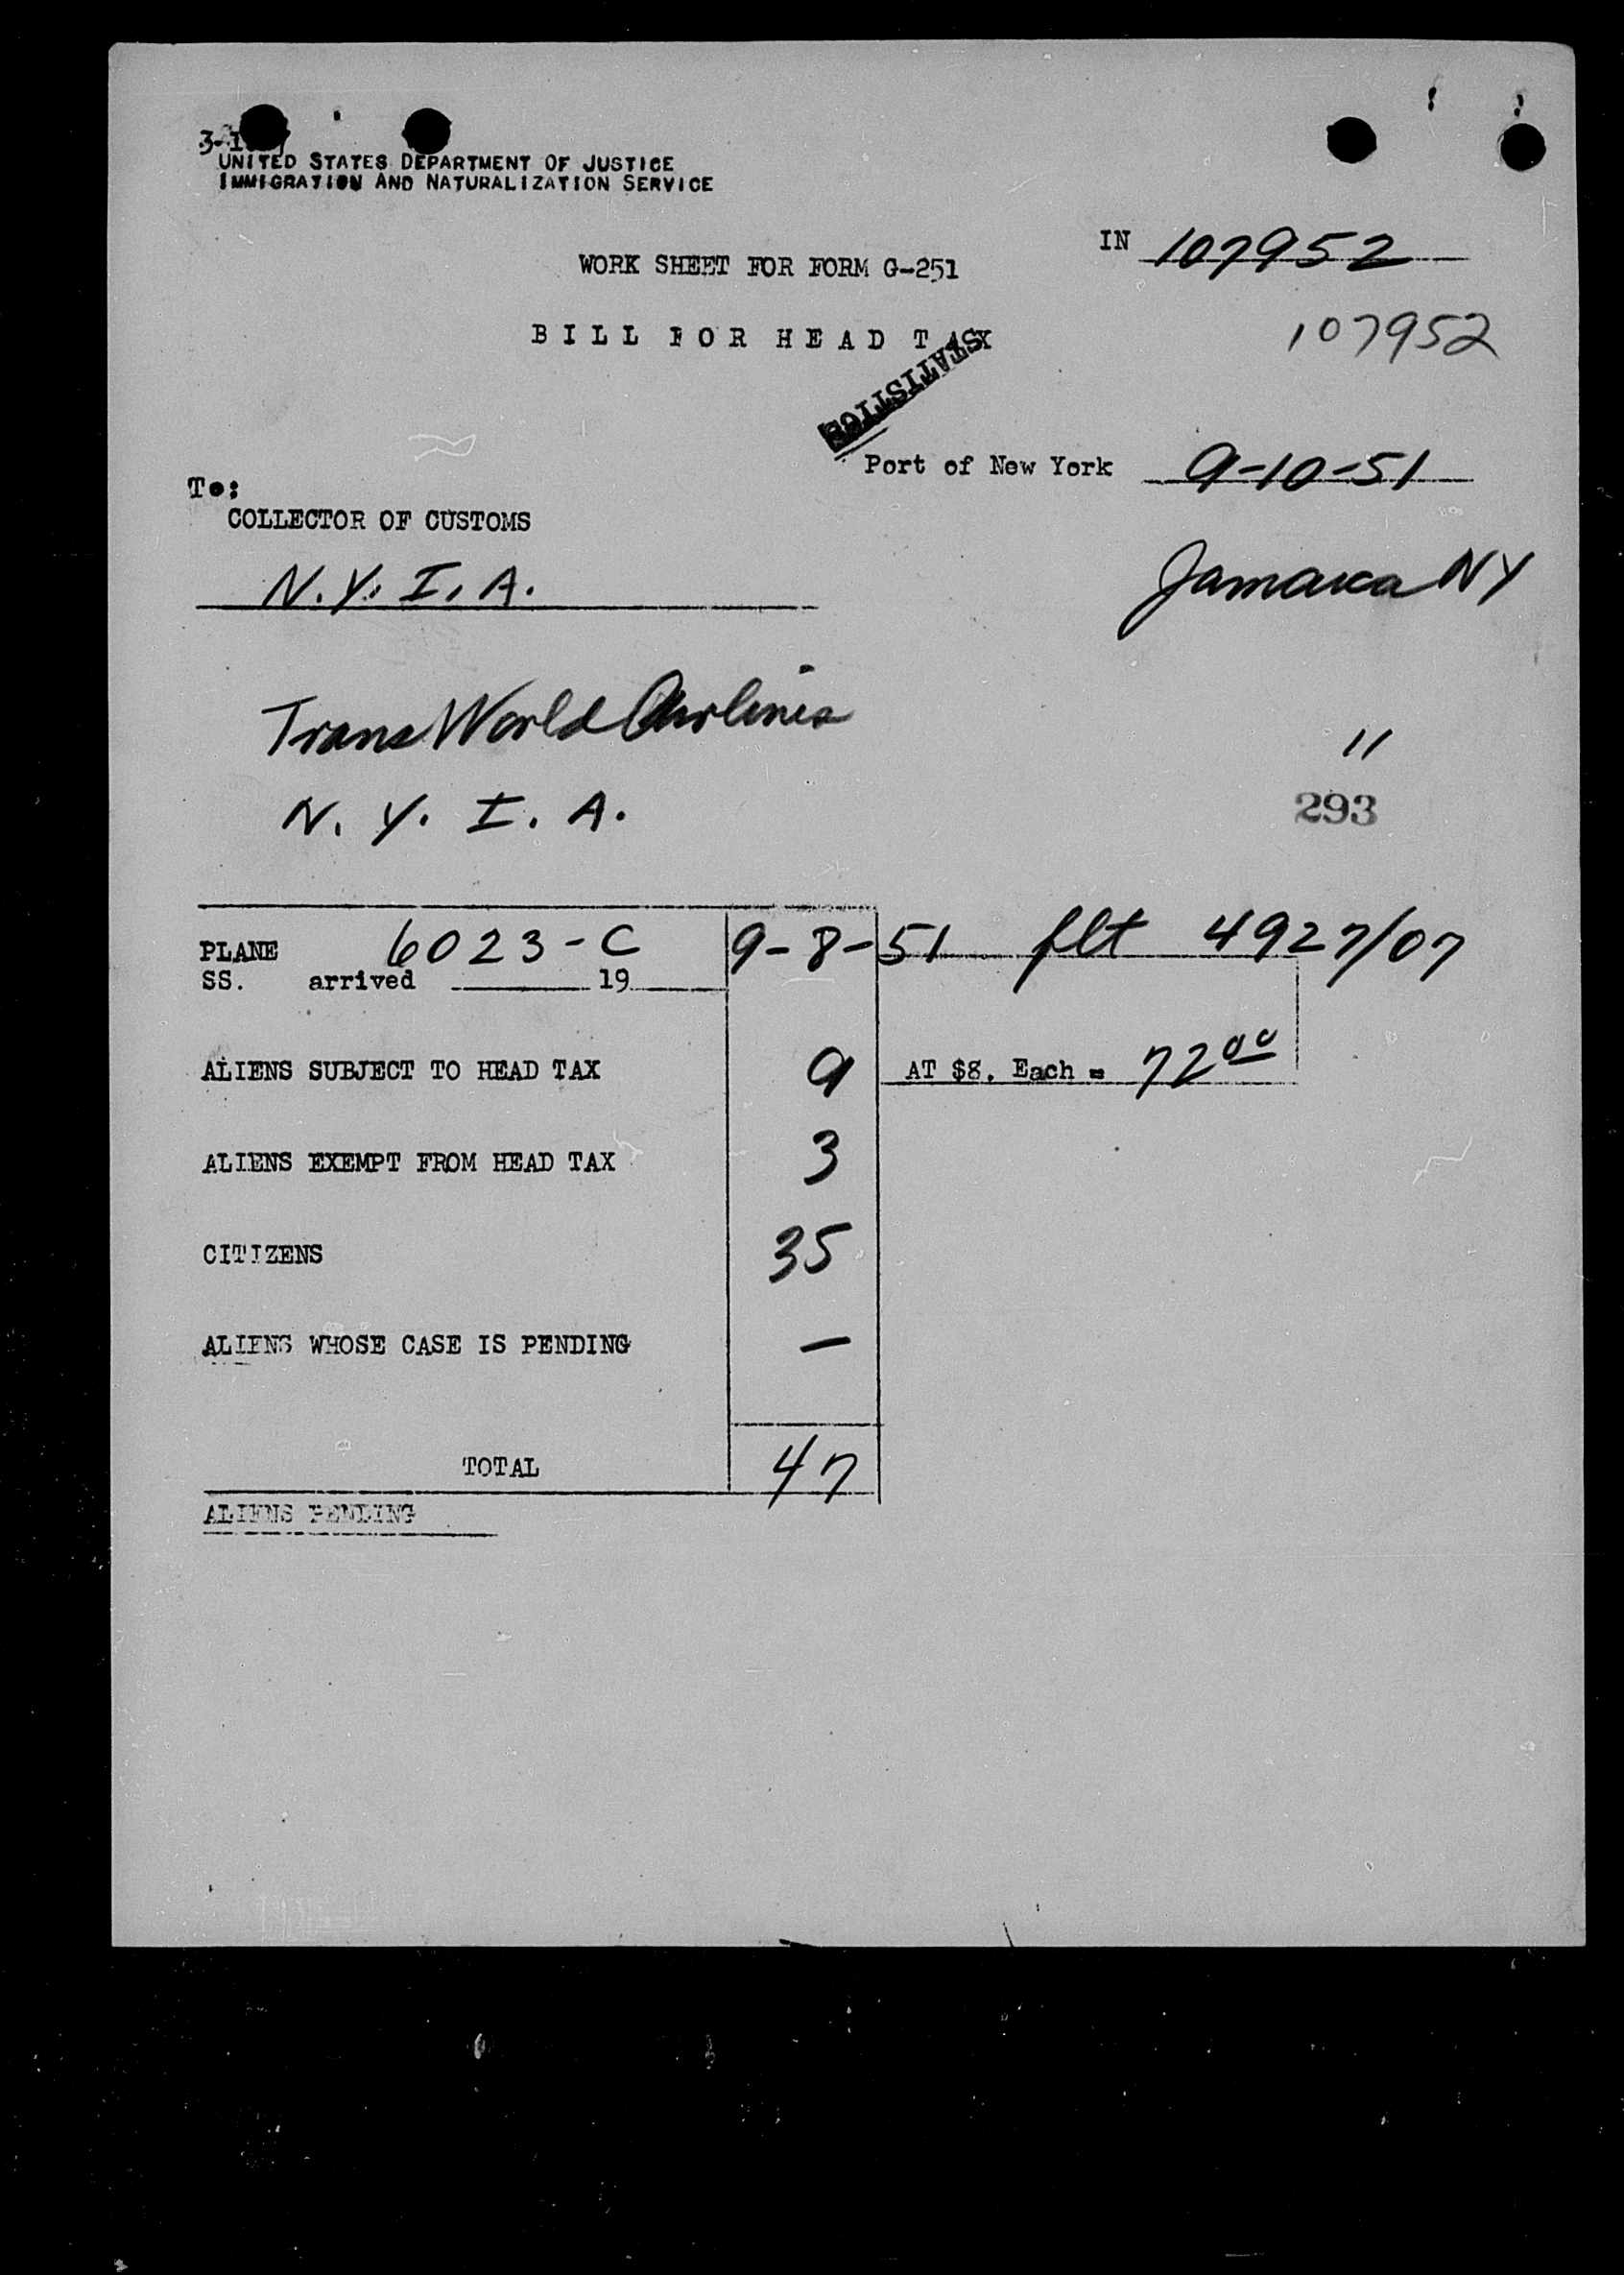 UNITED STATES DEPARTMENT OF JUSTICE
IMMIGRATION AND NATURALIZATION SERVICE
IN 107952
WORK SHEET FOR FORM G-251
BILL FOR HEAD TAX
107952
STATISTICS
Port of New York 9-10-51
To:
COLLECTOR OF CUSTOMS
N.Y.I.A.
Jamaica NY
Trans World Airlines
N.Y.I.A.
11
293
PLANE 6023-C 9-8-51 flt 4927/07
SS. arrived 19
ALIENS SUBJECT TO HEAD TAX 9 AT $8. Each = 72 00
ALIENS EXEMPT FROM HEAD TAX 3
CITIZENS 35
ALIENS WHOSE CASE IS PENDING —
TOTAL 47
ALIENS PENDING